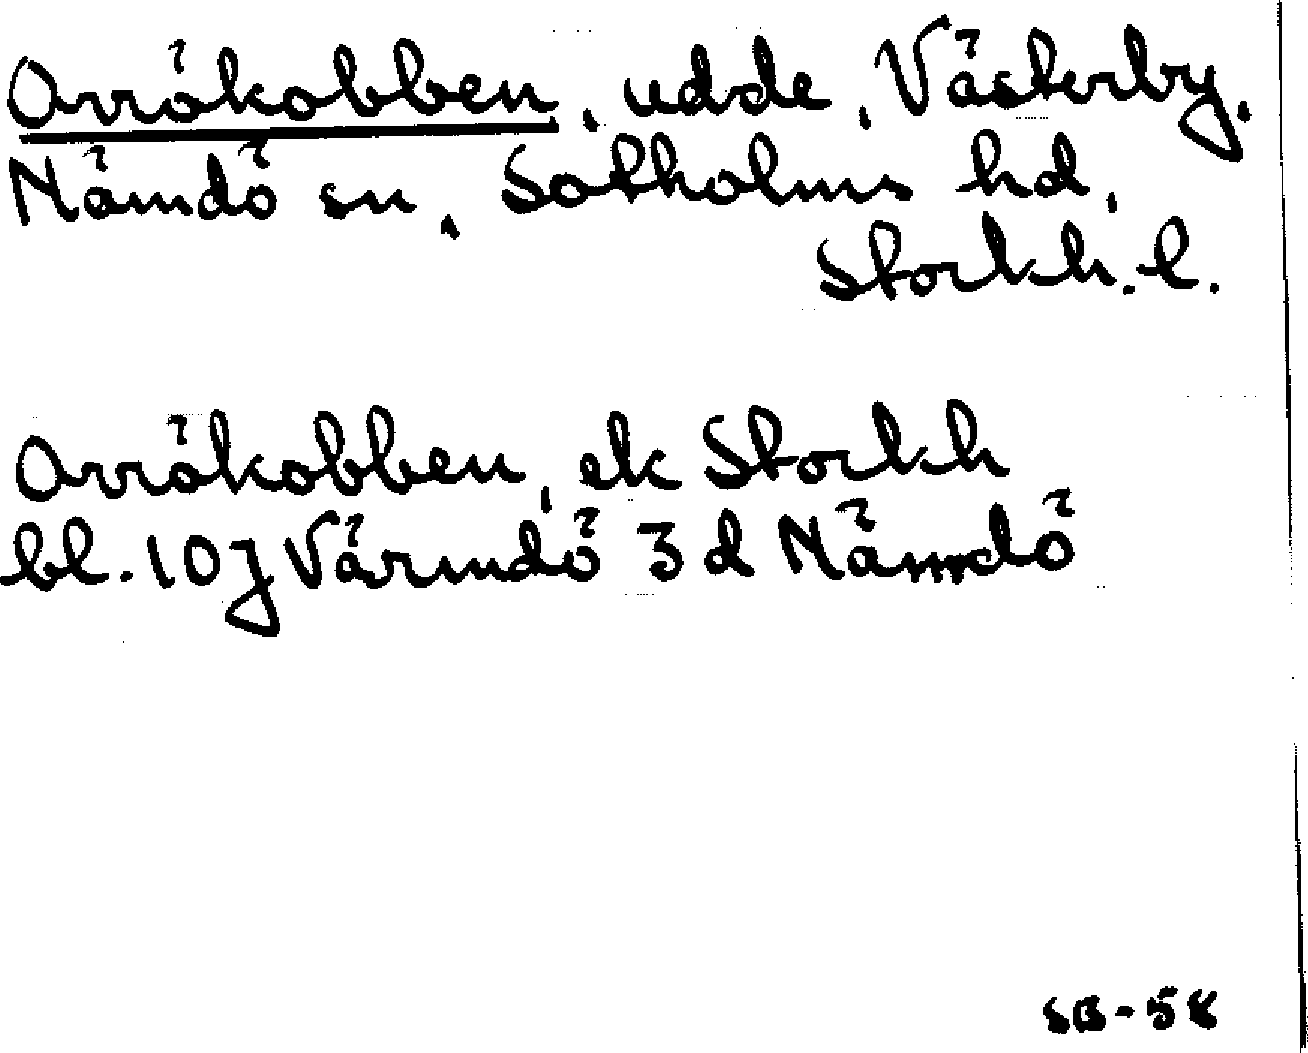 Orrökobben, udde, Västerby,
Nämdö sn, Sotholms hd,
Stockh.l.
Orrökobben, ek Stockh
bl. 10 J Värmdö 3 d Nämdö
SB-58